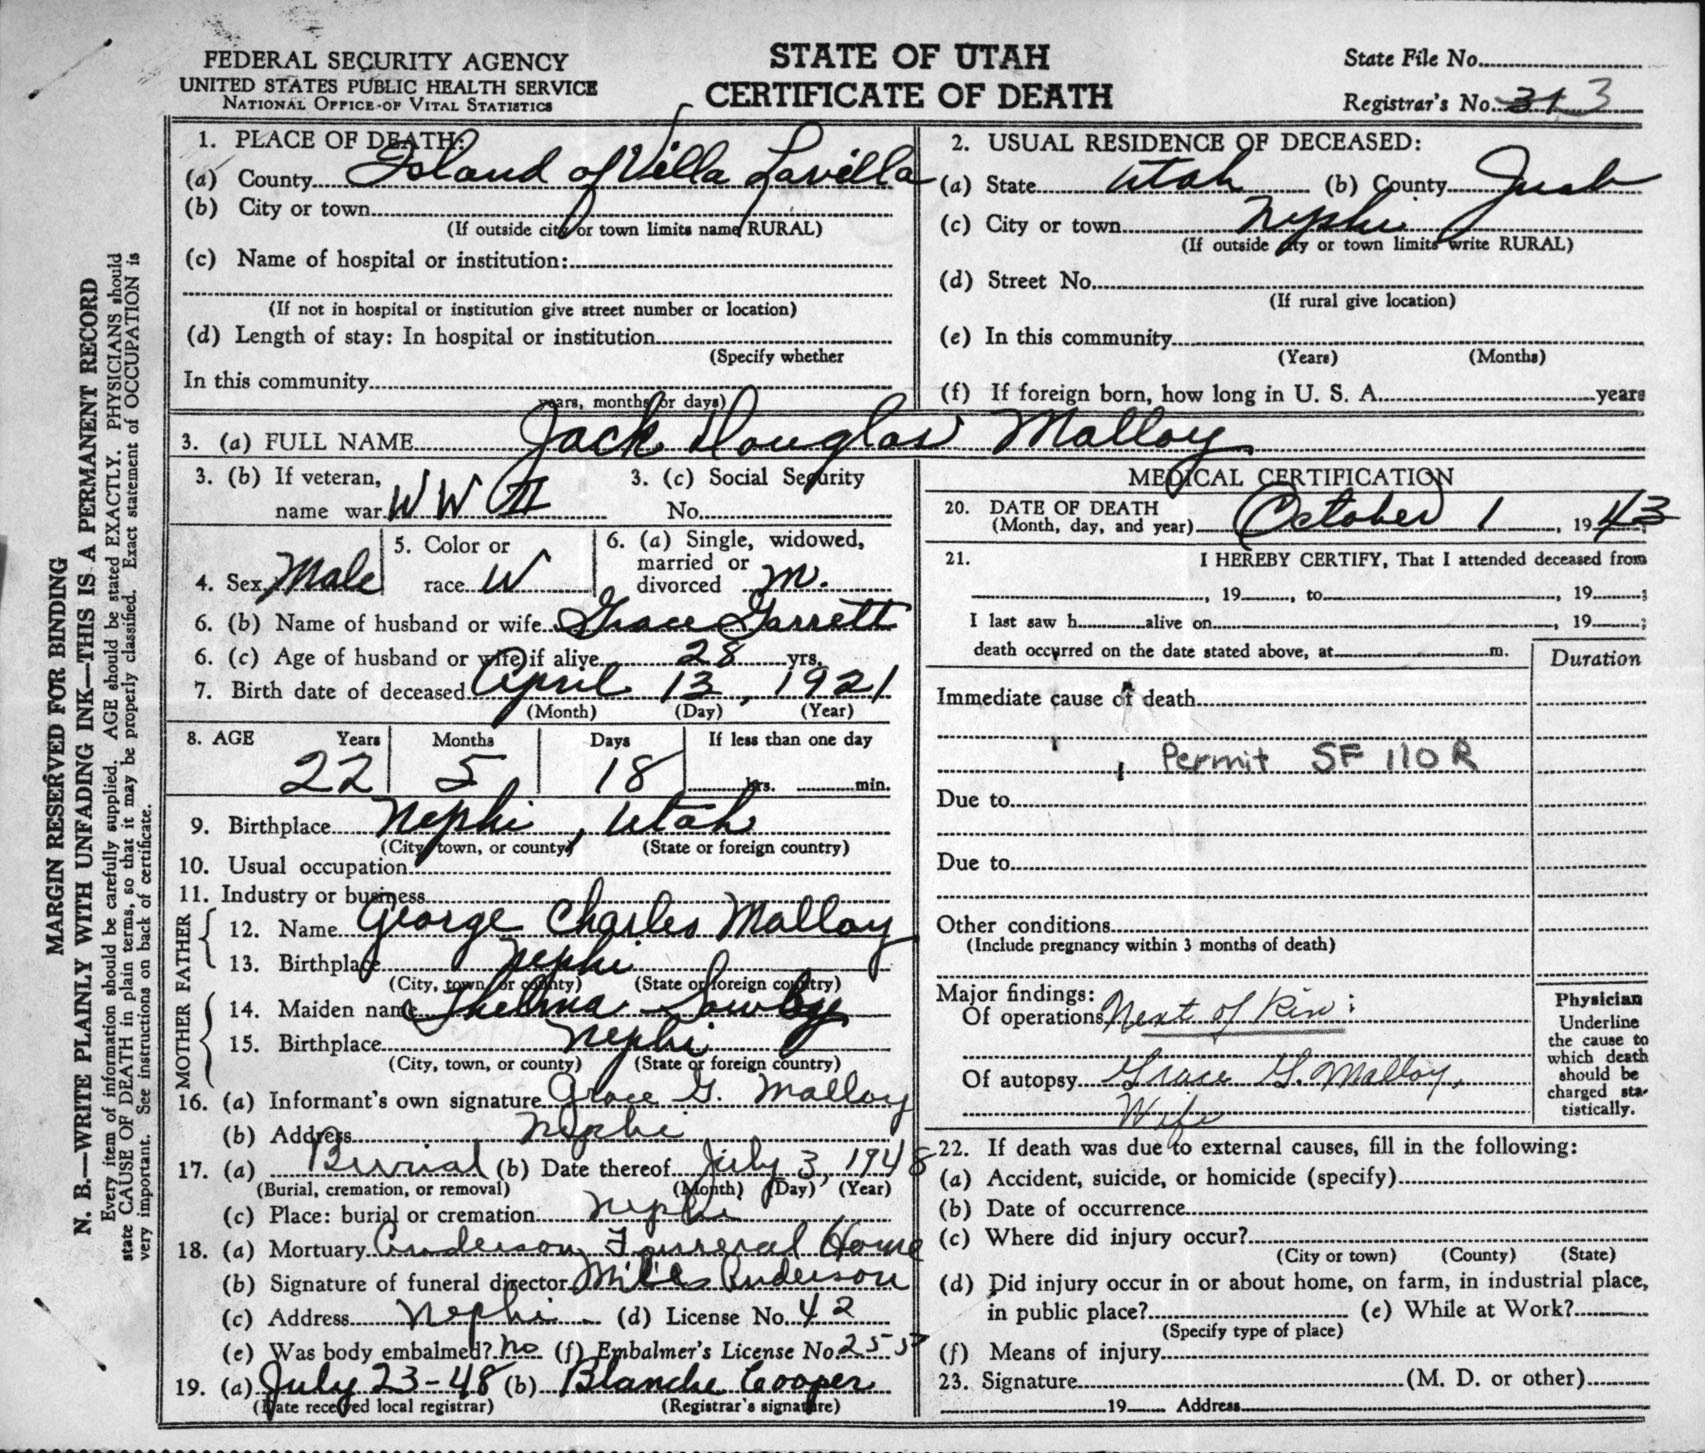 FEDERAL SECURITY AGENCY
UNITED STATES PUBLIC HEALTH SERVICE
NATIONAL OFFICE OF VITAL STATISTICS
STATE OF UTAH
CERTIFICATE OF DEATH
State File No.
Registrar's No. 31 3
MARGIN RESERVED FOR BINDING
N. B.—WRITE PLAINLY WITH UNFADING INK—THIS IS A PERMANENT RECORD
Every item of information should be carefully supplied. AGE should be stated EXACTLY. PHYSICIANS should
state CAUSE OF DEATH in plain terms, so that it may be properly classified. Exact statement of OCCUPATION is
very important. See instructions on back of certificate.
1. PLACE OF DEATH:
(a) County Island of Villa Lavilla
(b) City or town
(If outside city or town limits name RURAL)
(c) Name of hospital or institution:
(If not in hospital or institution give street number or location)
(d) Length of stay: In hospital or institution
(Specify whether
In this community
years, months or days)
2. USUAL RESIDENCE OF DECEASED:
(a) State Utah (b) County Juab
(c) City or town Nephi
(If outside city or town limits write RURAL)
(d) Street No.
(If rural give location)
(e) In this community
(Years) (Months)
(f) If foreign born, how long in U. S. A. years
3. (a) FULL NAME Jack Douglas Malloy
3. (b) If veteran,
name war WW II
3. (c) Social Security
No.
4. Sex Male
5. Color or
race W
6. (a) Single, widowed,
married or
divorced M.
6. (b) Name of husband or wife Grace Garrett
6. (c) Age of husband or wife if alive 28 yrs.
7. Birth date of deceased April 13, 1921
(Month) (Day) (Year)
8. AGE Years Months Days If less than one day
22 5 18 hrs. min.
9. Birthplace Nephi, Utah
(City, town, or county) (State or foreign country)
10. Usual occupation
11. Industry or business
FATHER
12. Name George Charles Malloy
13. Birthplace Nephi
(City, town or county) (State or foreign country)
MOTHER
14. Maiden name Thelma Sowby
15. Birthplace Nephi
(City, town, or county) (State or foreign country)
16. (a) Informant's own signature Grace G. Malloy
(b) Address Nephi
17. (a) Burial (b) Date thereof July 3, 1948
(Burial, cremation, or removal) (Month) (Day) (Year)
(c) Place: burial or cremation Nephi
18. (a) Mortuary Anderson Funeral Home
(b) Signature of funeral director Miles Anderson
(c) Address Nephi (d) License No. 42
(e) Was body embalmed? No (f) Embalmer's License No. 255
19. (a) July 23-48 (b) Blanche Cooper
(Date received local registrar) (Registrar's signature)
MEDICAL CERTIFICATION
20. DATE OF DEATH
(Month, day, and year) October 1, 1943;
21. I HEREBY CERTIFY, That I attended deceased from
, 19 , to , 19 ;
I last saw h alive on , 19 ;
death occurred on the date stated above, at m.
Duration
Immediate cause of death
Permit SF 110 R
Due to
Due to
Other conditions
(Include pregnancy within 3 months of death)
Major findings:
Of operations Next of Kin:
Of autopsy Grace G. Malloy,
Wife
Physician
Underline
the cause to
which death
should be
charged sta-
tistically.
22. If death was due to external causes, fill in the following:
(a) Accident, suicide, or homicide (specify)
(b) Date of occurrence
(c) Where did injury occur?
(City or town) (County) (State)
(d) Did injury occur in or about home, on farm, in industrial place,
in public place? (e) While at Work?
(Specify type of place)
(f) Means of injury
23. Signature (M. D. or other)
19 Address